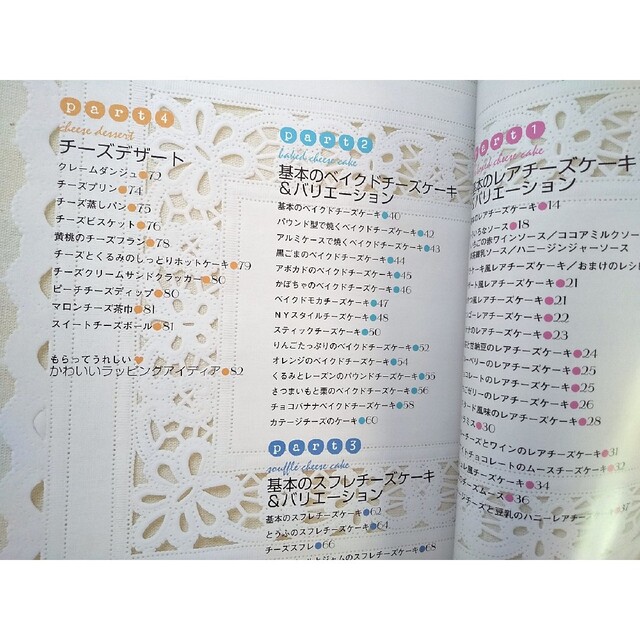 part4
cheese dessert
チーズデザート
クレームダンジュ●72
チーズプリン●74
チーズ蒸しパン●75
チーズビスケット●76
黄桃のチーズフラン●78
チーズとくるみのしっとりホットケーキ●79
チーズクリームサンドクラッカー●80
ピーチチーズディップ●80
マロンチーズ茶巾●81
スイートチーズボール●81
もらってうれしい♥
かわいいラッピングアイディア●82
part2
baked cheese cake
基本のベイクドチーズケーキ
&バリエーション
基本のベイクドチーズケーキ●40
パウンド型で焼くベイクドチーズケーキ●42
アルミケースで焼くベイクドチーズケーキ●43
黒ごまのベイクドチーズケーキ●44
アボカドのベイクドチーズケーキ●45
かぼちゃのベイクドチーズケーキ●46
ベイクドモカチーズケーキ●47
NYスタイルチーズケーキ●48
スティックチーズケーキ●50
りんごたっぷりのベイクドチーズケーキ●52
オレンジのベイクドチーズケーキ●54
くるみとレーズンのパウンドチーズケーキ●55
さつまいもと栗のベイクドチーズケーキ●56
チョコバナナベイクドチーズケーキ●58
カテージチーズのケーキ●60
part3
soufflé cheese cake
基本のスフレチーズケーキ
&バリエーション
基本のスフレチーズケーキ●62
とうふのスフレチーズケーキ●64
チーズスフレ●66
ジャムのスフレチーズケーキ●68
part1
cheese cake
基本のレアチーズケーキ
&バリエーション
のレアチーズケーキ●14
いろいろなソース●18
ちごの赤ワインソース／ココアミルクソース
練乳ソース／ハニージンジャーソース
ケーキ風レアチーズケーキ／おまけのレシピ
ート風レアチーズケーキ●21
つ風レアチーズケーキ●21
ゴーレアチーズケーキ●22
ナのレアチーズケーキ●23
と甘納豆のレアチーズケーキ●24
ーベリーのレアチーズケーキ●25
コレートのレアチーズケーキ●25
ごゼリーのレアチーズケーキ●26
タード風味のレアチーズケーキ●28
ラミス●30
ーチーズとワインのレアチーズケーキ●31
イトチョコレートのムースチーズケーキ●32
レ風チーズケーキ●34
チーズムース●36
ンチーズと豆乳のハニーレアチーズケーキ●37